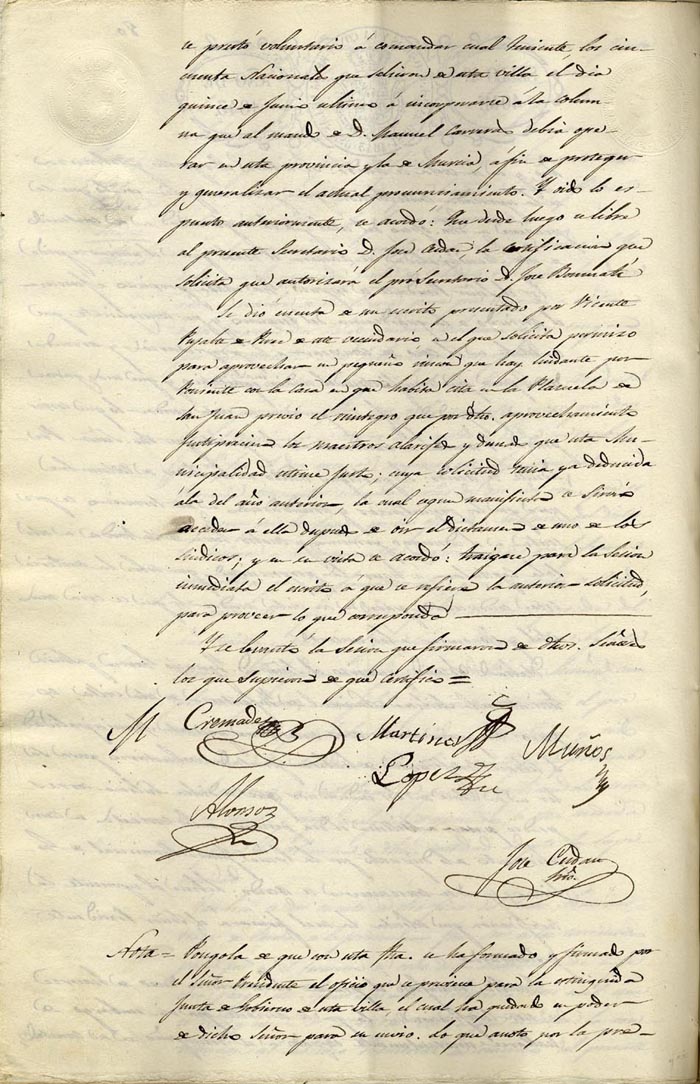 se prestó voluntario á comandar cual Teniente los cin-
cuenta Nacionales que salieron de esta villa el dia
quince de Junio ultimo á incorporarse á la colum-
na que al mando de D. Manuel Carreras debia ope-
rar en esta provincia y la de Murcia, á fin de proteger
y generalizar el actual pronunciamiento. Y oido lo es-
puesto anteriormente, se acordó: Que desde luego se libre
al presente Secretario D. José la certificacion que
solicita que autorizará el D. Jose
Se dió cuenta de un escrito presentado por Vicente
de de este vecindario en el que solicita permiso
para aprovechar un pequeño que hay lindante por
Poniente con la Casa en que habita cita en la Plazuela de
San Juan previo el reintegro que por dho. aprovechamiento
justiprecien los maestros alarifes y demas que esta Mu-
nicipalidad estime justo; cuya solicitud tenia ya deducida
á la del año anterior, la cual segun manifiesta se sirvió
acceder á ella despues de oir el dictamen de uno de los
Sindicos; y en su vista se acordó: traigase para la Sesion
inmediata el escrito á que se refiere la anterior solicitud,
para proveer lo que corresponda
Y se levantó la Sesion que firmaron de dhos. Señores
los que supieron de que certifico =
M Cremades Martinez Muños
Lopez
Alonso
Jose
Srio.
Nota = Pongola de que con esta fha. se ha formado y firmado por
el Señor Presidente el oficio que se previene para la estinguida
Junta de Gobierno de esta villa, el cual ha quedado en poder
de dicho Señor para su envio. Lo que anoto por la pre-